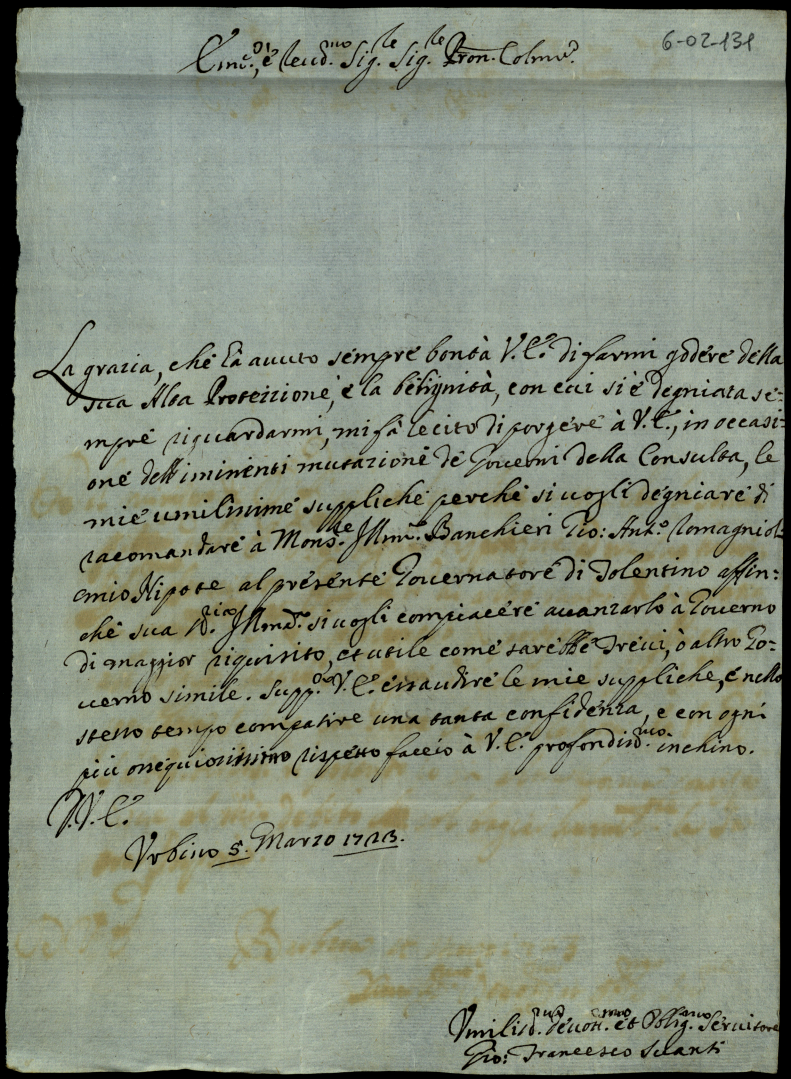 6-02-131
Em.º, e Reud.mo Sig.re Sig.re Pron. Colmo.
La grazia, che hà auuto sempre bontà V. E. di farmi godere della
sua Alta Protezzione, e la benignità, con cui si è degniata se-
mpre riguardarmi, mi fà lecito di porgere à V. E., in occasi-
one dell'iminenti mutazione de Gouerni della Consulta, le
mie umilissime suppliche perche si uogli degniare di
racomandare à Mons.re Illmo. Banchieri Gio: Ant.º Romagnioli
mio Nipote al presente Gouernatore di Tolentino affin-
che sua Illma. si uogli compiacere auanzarlo à Gouerno
di maggior riquisito, et utile come sarebbe Treui, ò altro Go-
uerno simile. Supp.co V. E. essaudire le mie suppliche, e nello
stesso tempo compatire una tanta confidenza, e con ogni
più ossequiosissimo rispetto faccio à V. E. profondis.mo inchino.
D. V. E.
Vrbino 5. Marzo 1723.
Vmilis.mo deuot.mo et Oblig.mo Seruitore
Gio: Francesco